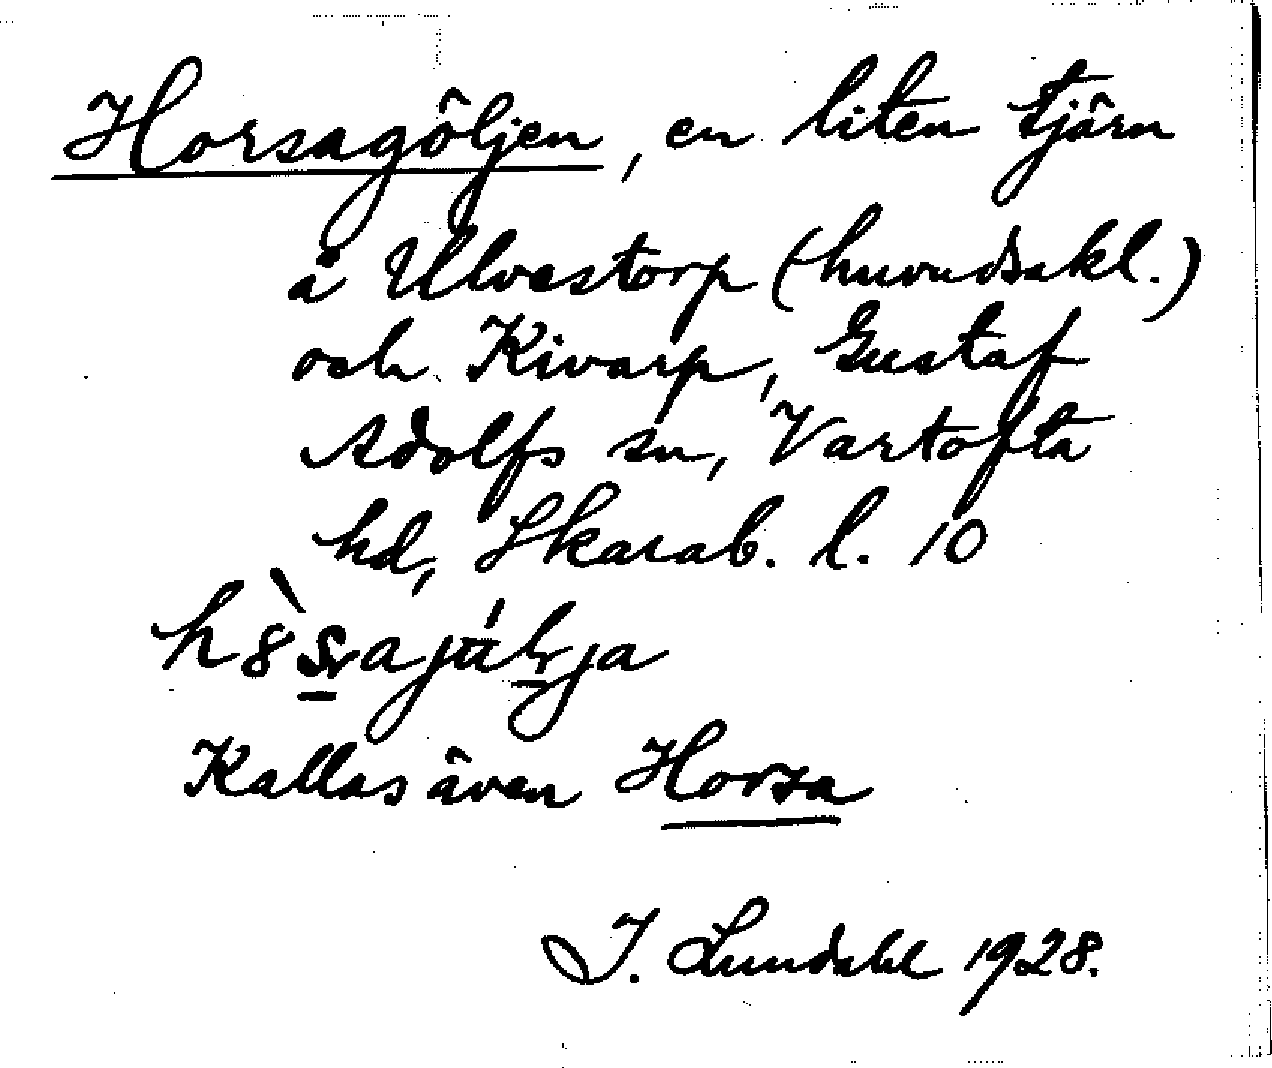 Horsagöljen, en liten tjärn
å Ulvestorp (huvudsakl.)
och Kivarp, Gustaf
Adolfs sn, Vartofta
hd, Skarab. l. 10
Kallas även Horsa
I. Lundahl 1928.